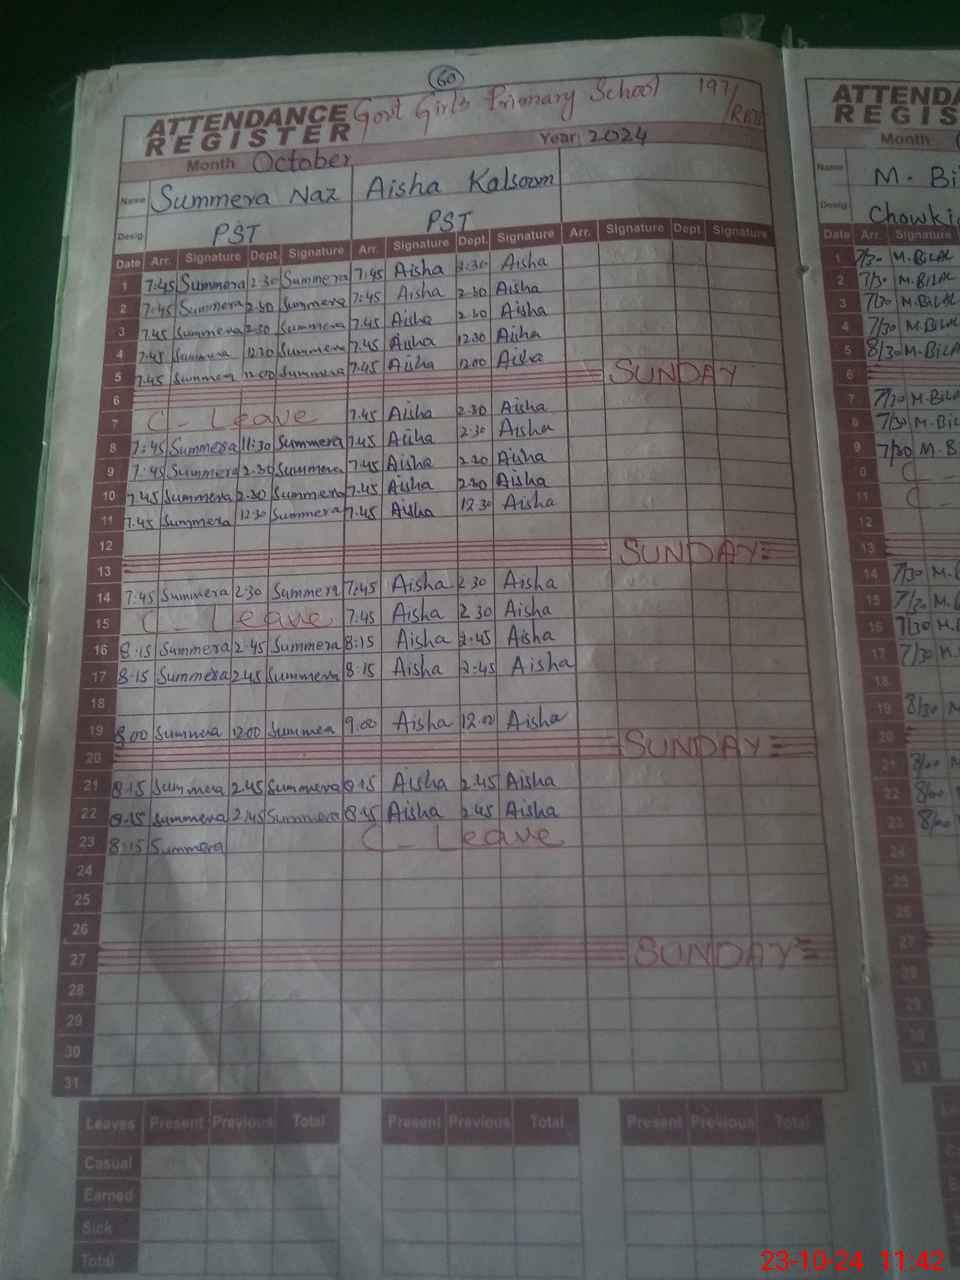 60
ATTENDANCE REGISTER Govt Girls Primary School 197/
Month October Year: 2024
Name Summera Naz Aisha Kalsoom
Desig. PST PST
Date Arr. Signature Dept. Signature Arr. Signature Dept. Signature Arr. Signature Dept. Signature
1 7:45 Summera 2 30 Summera 7:45 Aisha 2:30 Aisha
2 7:45 Summera 2 30 Summera 7:45 Aisha 2 30 Aisha
3 7.45 Summera 2 30 Summera 7.45 Aisha 2 30 Aisha
4 7:45 Summera 12 30 Summera 7.45 Aisha 12 30 Aisha
5 7.45 Summera 12:00 Summera 7.45 Aisha 12:00 Aisha
6 SUNDAY
7 C - Leave 7.45 Aisha 2.30 Aisha
8 7:45 Summera 11:30 Summera 7.45 Aisha 2:30 Aisha
9 7:45 Summera 2.30 Summera 7.45 Aisha 2.30 Aisha
10 7.45 Summera 2.30 Summera 7.45 Aisha 2.30 Aisha
11 7.45 Summera 12 30 Summera 7.45 Aisha 12 30 Aisha
12
13 SUNDAY
14 7.45 Summera 2 30 Summera 7:45 Aisha 2 30 Aisha
15 C - Leave 7.45 Aisha 2 30 Aisha
16 8:15 Summera 2 45 Summera 8:15 Aisha 2:45 Aisha
17 8.15 Summera 2 45 Summera 8.15 Aisha 2:45 Aisha
18
19 8.00 Summera 12 00 Summera 9.00 Aisha 12.00 Aisha
20 SUNDAY
21 8.15 Summera 2.45 Summera 8.15 Aisha 2.45 Aisha
22 8.15 Summera 2.45 Summera 8.15 Aisha 2.45 Aisha
23 8:15 Summera C - Leave
24
25
26
27 SUNDAY
28
29
30
31
Leaves Present Previous Total Present Previous Total Present Previous Total
Casual
Earned
Sick
Total
ATTENDA
REGIS
Month
Name M. Bil
Desig. Chowki
Date Arr. Signature
1 7/30 M.BILAL
2 7/30 M.BILAL
3 7/30 M.BILAL
4 7/30 M.BILAL
5 8/30 M.BILAL
6
7 7/30 M.BILA
8 7/30 M.BIL
9 7/30 M.B
0 C -
11 C -
12
13
14 7/30 M.B
15 7/30 M.
16 7/30 M.
17 7/30 M.
18
19 8/30 M.
20
21 8/00 M
22 8/00
23 8/00
24
25
26
27
28
29
30
31
23-10-24 11:42